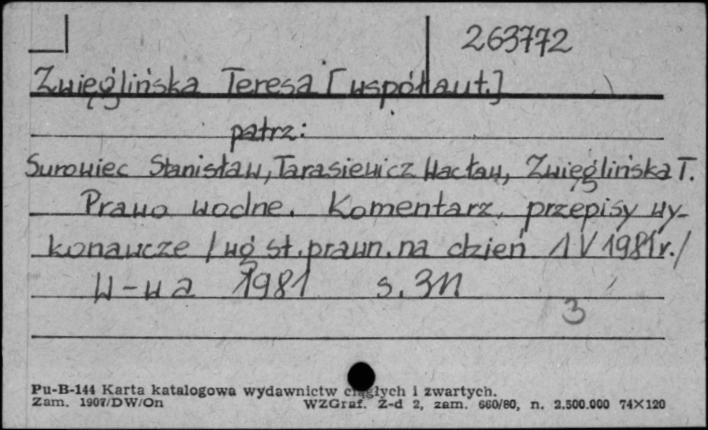 263772
Zwięglińska Teresa [współaut.]
patrz:
Surowiec Stanisław, Tarasiewicz Wacław, Zwięglińska T.
Prawo wodne. Komentarz, przepisy wy-
konawcze /wg st. prawn. na dzień 1 V 1981r./
W-wa 1981 s. 311
3
Pu-B-144 Karta katalogowa wydawnictw ciągłych i zwartych.
Zam. 1907/DW/On WZGraf. Z-d 2, zam. 660/80, n. 2.500.000 74×120